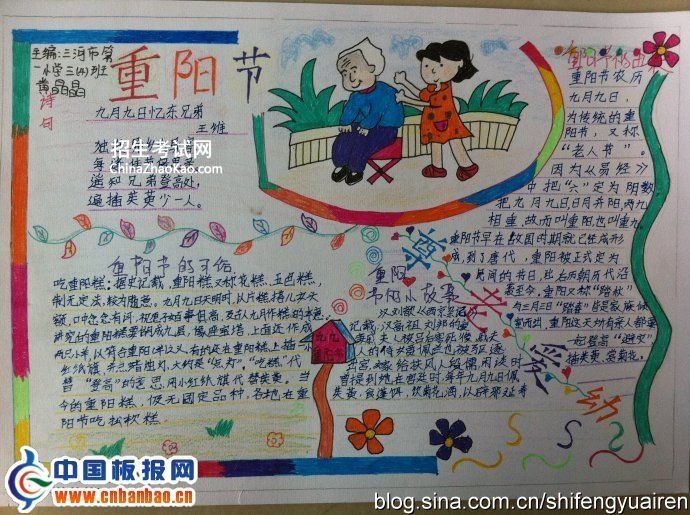 主编:三河市第
一小学三(4)班
黄晶晶
重阳节
诗日
九月九日忆东兄弟
王维
招生考试网
ChinaZhaoKao.com
遥知兄弟登高处,
遍插茱萸少一人。
重阳节的习俗
吃重阳糕:据史记载,重阳糕又称花糕、五色糕,
制无定法,较为随意。九月九日天明时,以片糕搭儿女头
额,口中念念有词,祝愿子女百事俱高,乃古人九月作糕的本意。
讲究的重阳糕要做成九层,像座宝塔,上面还作成
两只小羊,以符合重阳(羊)之义。有的还在重阳糕上插一
红纸旗,并点蜡烛灯。大约是“点灯”、“吃糕”代
替“登高”的意思,用小红纸旗代替茱萸。当
今的重阳糕,仍无固定品种,各地在重
阳节吃松软糕
重阳节的由来
重阳节农历
九月九日,
为传统的重
阳节,又称
“老人节”。
因为《易经》
中把“六”定为阴数
把九月九日日月并阳两九
相重,故而叫重阳也叫重九。
重阳节早在战国时期就已经形
成,到了唐代,重阳被正式定为
民间的节日,
至今,重阳又称“踏秋”
与三月三日“踏春”皆是家族倾
室而出,重阳这天所有亲人都要
一起登高“避灾”
插茱萸、赏菊花。
重阳
节的小故事
记载,汉高祖刘邦的
出宫,嫁给扶风人段儒
曾提到她在宫廷时,每年九月九日佩
茱萸,食蓬饵,饮菊花酒,以
尊老爱幼
九九
重阳节
中国板报网
www.cnbanbao.cn
blog.sina.com.cn/shifengyuairen